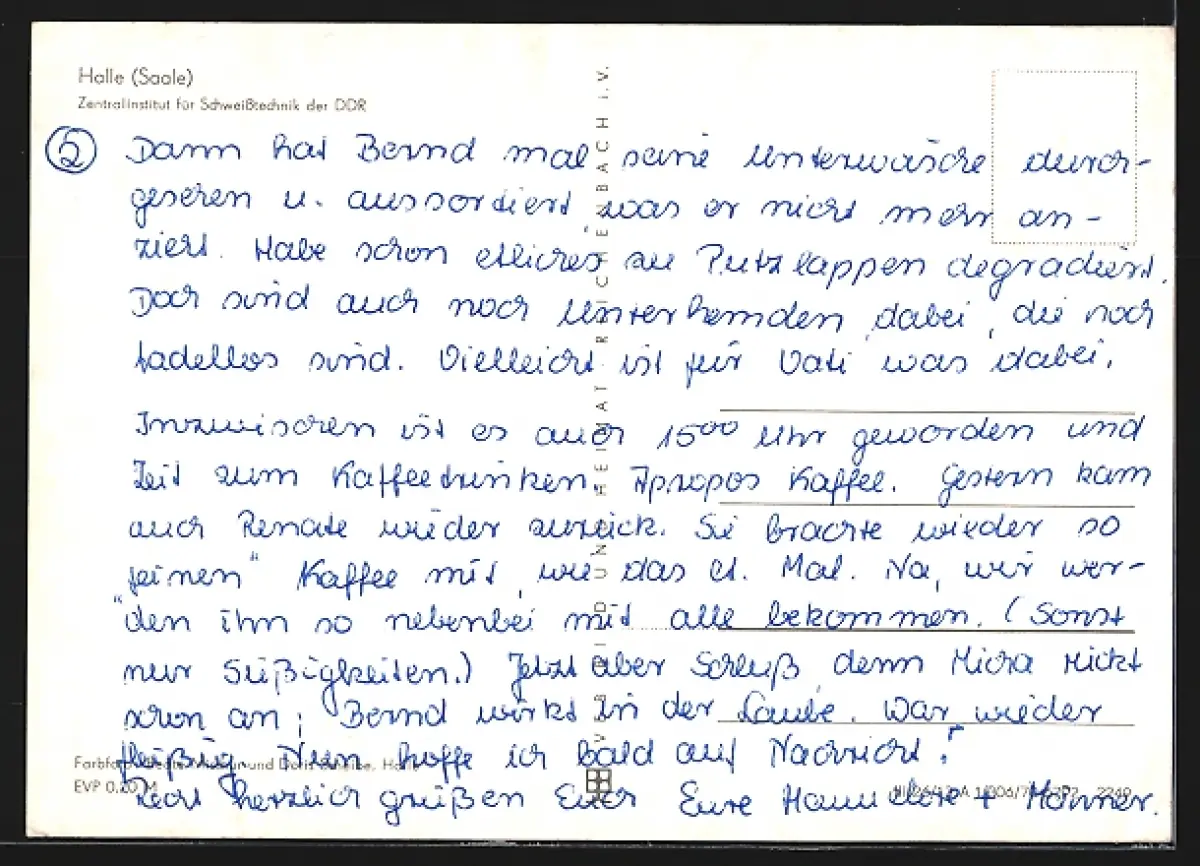 Halle (Saale)
Zentralinstitut für Schweißtechnik der DDR
② Dann hat Bernd mal seine Unterwäsche durch-
gesehen u. aussortiert, was er nicht mehr an-
zieht. Habe schon etliches zu Putzlappen degradiert.
Doch sind auch noch Unterhemden dabei, die noch
tadellos sind. Vielleicht ist für Vati was dabei.
Inzwischen ist es auch 15⁰⁰ Uhr geworden und
Zeit zum Kaffeetrinken. Apropos Kaffee. Gestern kam
auch Renate wieder zurück. Sie brachte wieder so
„feinen“ Kaffee mit, wie das l. Mal. Na, wir wer-
den ihn so nebenbei mit alle bekommen. (Sonst
nur Süßigkeiten.) Jetzt aber Schluß, denn Micha rückt
schon an; Bernd wirkt in der Laube. War wieder
fleißig. Nun hoffe ich bald auf Nachricht!
Recht herzlich grüßen Euch Eure Hannelore +
EVP 0,20 M